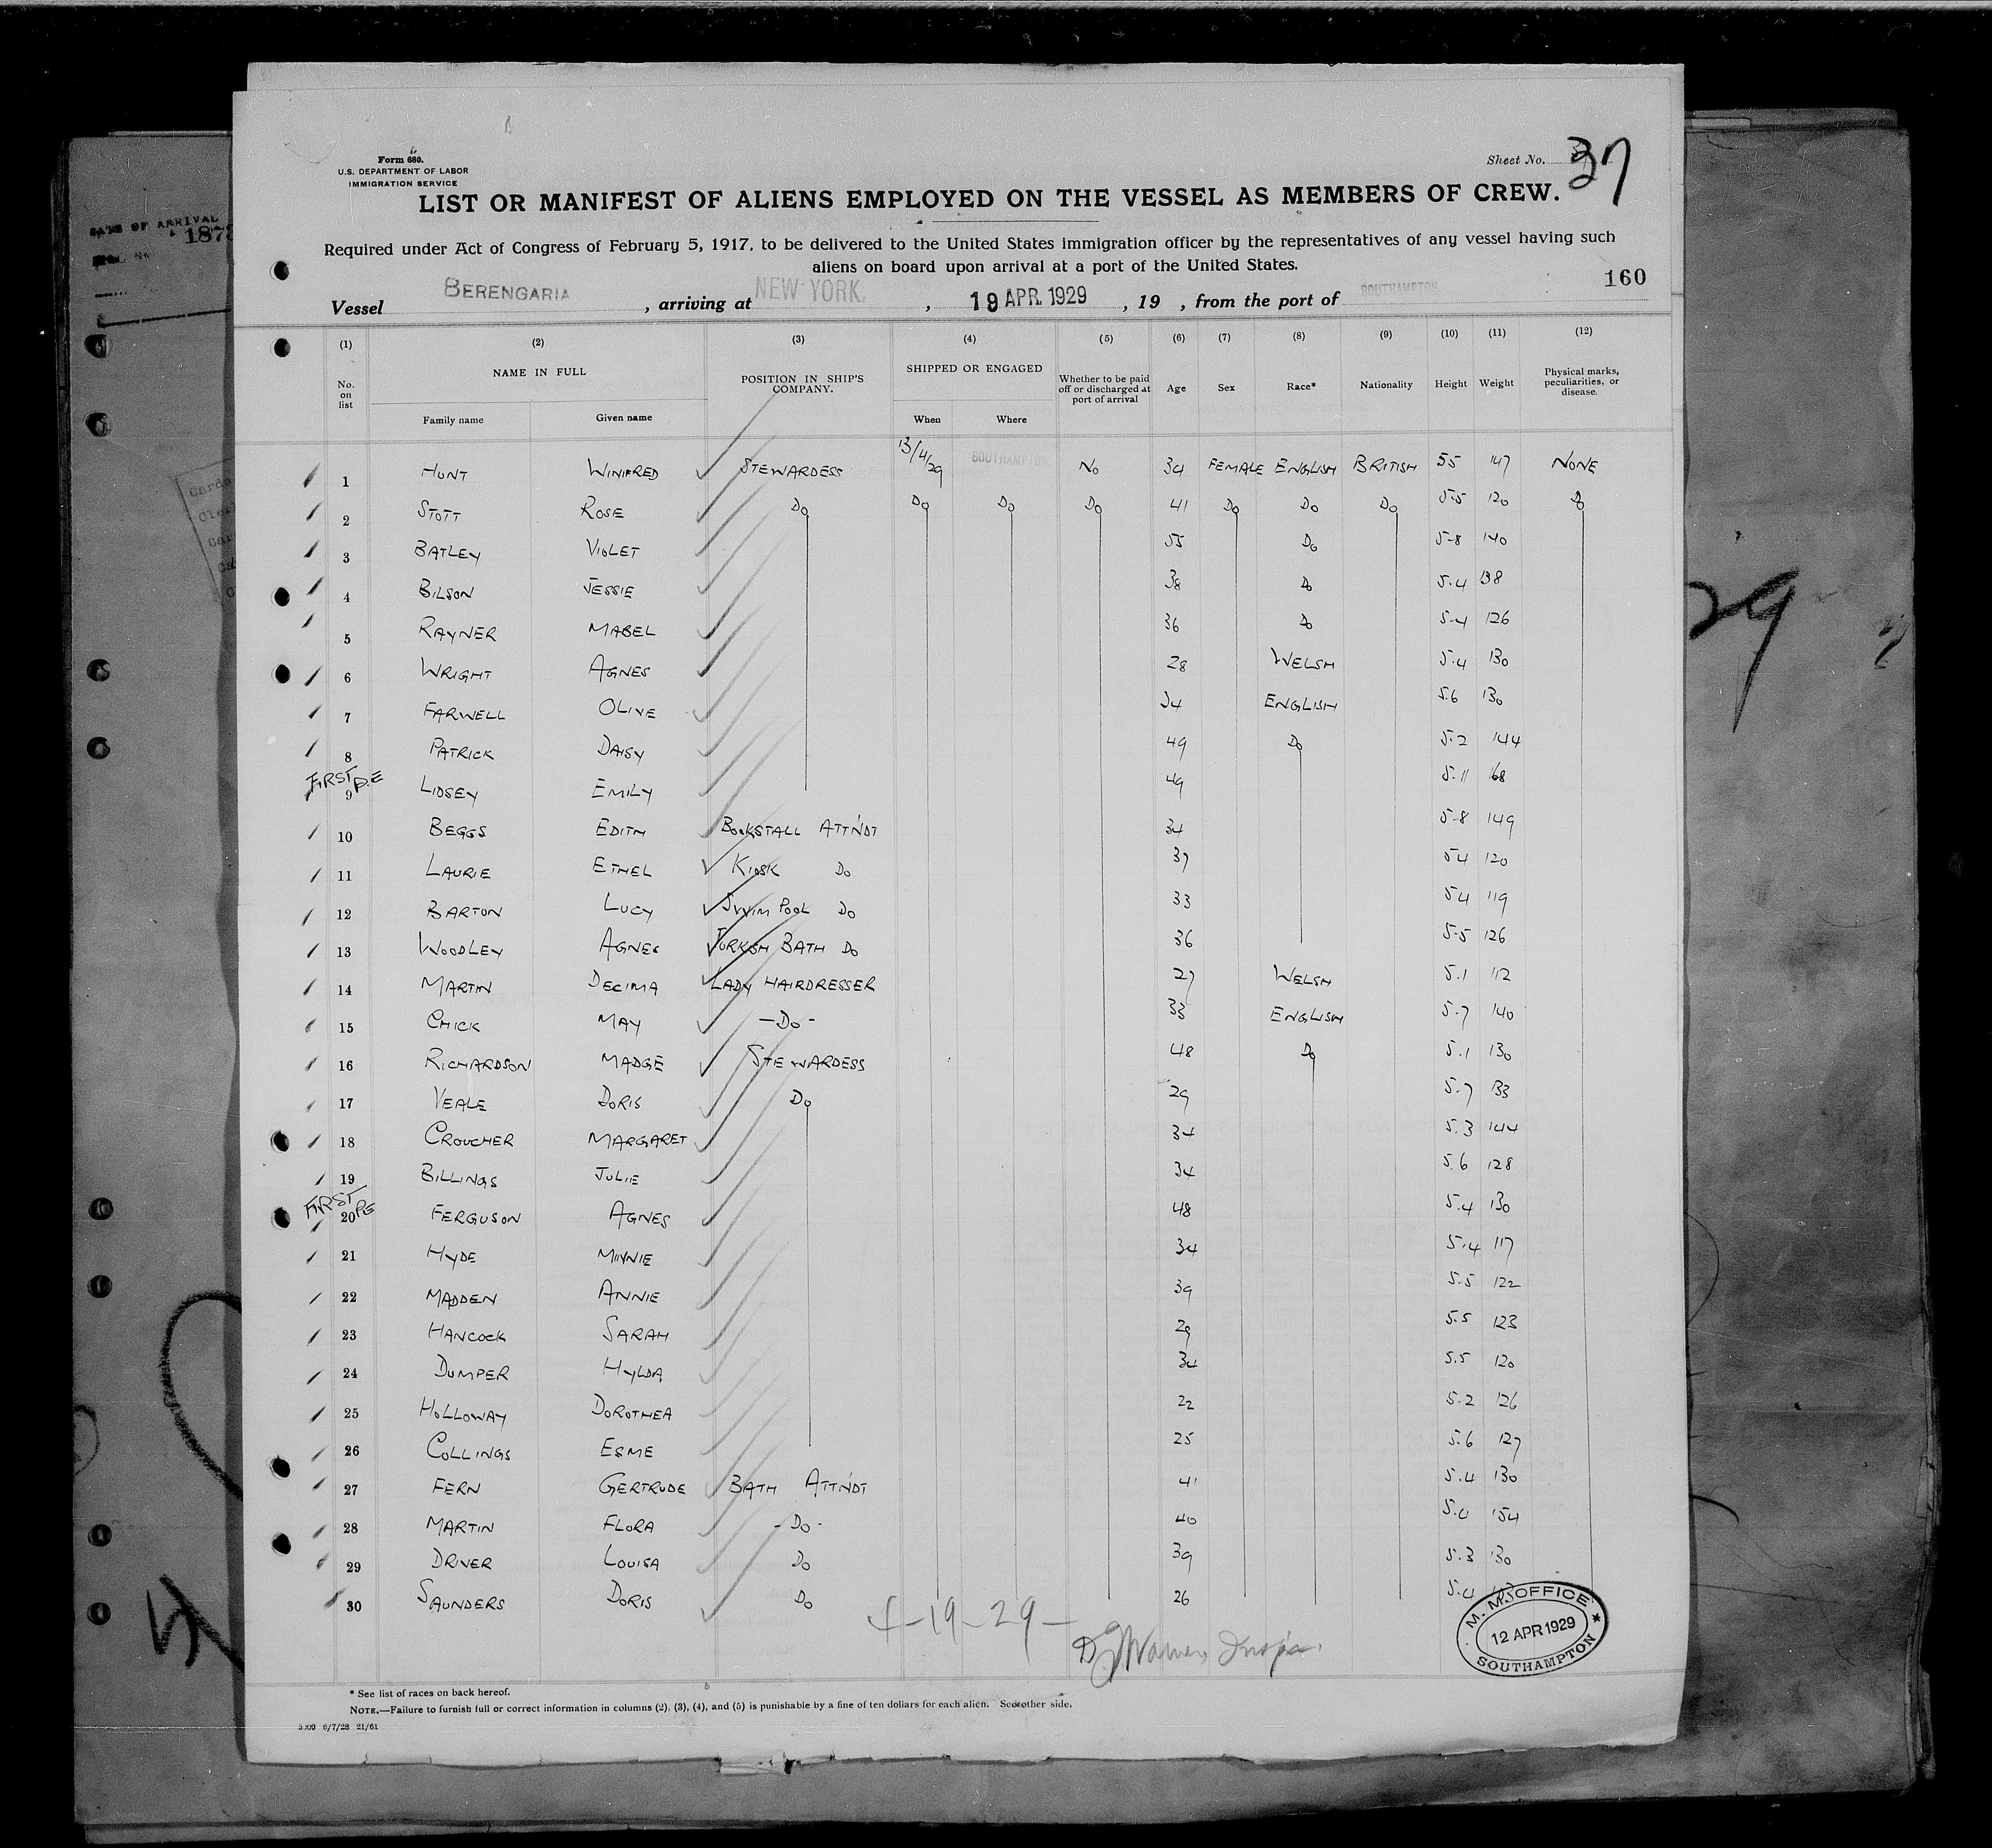 Form 680.
U.S. DEPARTMENT OF LABOR
IMMIGRATION SERVICE
Sheet No. 37
LIST OR MANIFEST OF ALIENS EMPLOYED ON THE VESSEL AS MEMBERS OF CREW.
Required under Act of Congress of February 5, 1917, to be delivered to the United States immigration officer by the representatives of any vessel having such
aliens on board upon arrival at a port of the United States.
160
Vessel BERENGARIA , arriving at NEW YORK. , 19 APR. 1929 , 19 , from the port of SOUTHAMPTON
(1) (2) (3) (4) (5) (6) (7) (8) (9) (10) (11) (12)
No. on list NAME IN FULL POSITION IN SHIP'S COMPANY. SHIPPED OR ENGAGED Whether to be paid off or discharged at port of arrival Age Sex Race* Nationality Height Weight Physical marks, peculiarities, or disease.
Family name Given name When Where
1 HUNT WINIFRED STEWARDESS 13/4/29 SOUTHAMPTON NO 34 FEMALE ENGLISH BRITISH 55 147 NONE
2 STOTT ROSE DO DO DO DO 41 DO DO DO 5-5 120 DO
3 BATLEY VIOLET 55 DO 5-8 140
4 BILSON JESSIE 38 DO 5.4 138
5 RAYNER MABEL 36 DO 5-4 126
6 WRIGHT AGNES 28 WELSH 5.4 130
7 FARWELL OLIVE 34 ENGLISH 5.6 130
8 PATRICK DAISY 49 DO 5.2 144
FIRST P.E
9 LIDSEY EMILY 49 5.11 168
10 BEGGS EDITH BOOKSTALL ATT'NDT 34 5-8 149
11 LAURIE ETHEL KIOSK DO 37 54 120
12 BARTON LUCY SWIM POOL DO 33 54 119
13 WOODLEY AGNES TURKISH BATH DO 36 5-5 126
14 MARTIN DECIMA LADY HAIRDRESSER 27 WELSH 5.1 112
15 CHICK MAY -DO- 33 ENGLISH 5.7 140
16 RICHARDSON MADGE STEWARDESS 48 DO 5.1 130
17 VEALE DORIS DO 29 5.7 133
18 CROUCHER MARGARET 34 5.3 144
19 BILLINGS JULIE 34 5.6 128
FIRST PE
20 FERGUSON AGNES 48 5.4 130
21 HYDE MINNIE 34 5.4 117
22 MADDEN ANNIE 39 5.5 122
23 HANCOCK SARAH 29 5.5 123
24 DUMPER HYLDA 34 5.5 120
25 HOLLOWAY DOROTHEA 22 5.2 126
26 COLLINGS ESME 25 5.6 127
27 FERN GERTRUDE BATH ATT'NDT 41 5.4 130
28 MARTIN FLORA -DO- 40 154
29 DRIVER LOUISA DO 39 5.3 130
30 SAUNDERS DORIS DO 26
4-19-29-
M.M. OFFICE
12 APR 1929
SOUTHAMPTON
* See list of races on back hereof.
NOTE.—Failure to furnish full or correct information in columns (2), (3), (4), and (5) is punishable by a fine of ten dollars for each alien. See other side.
5000 6/7/28 21/61
DATE OF ARRIVAL
1873
29